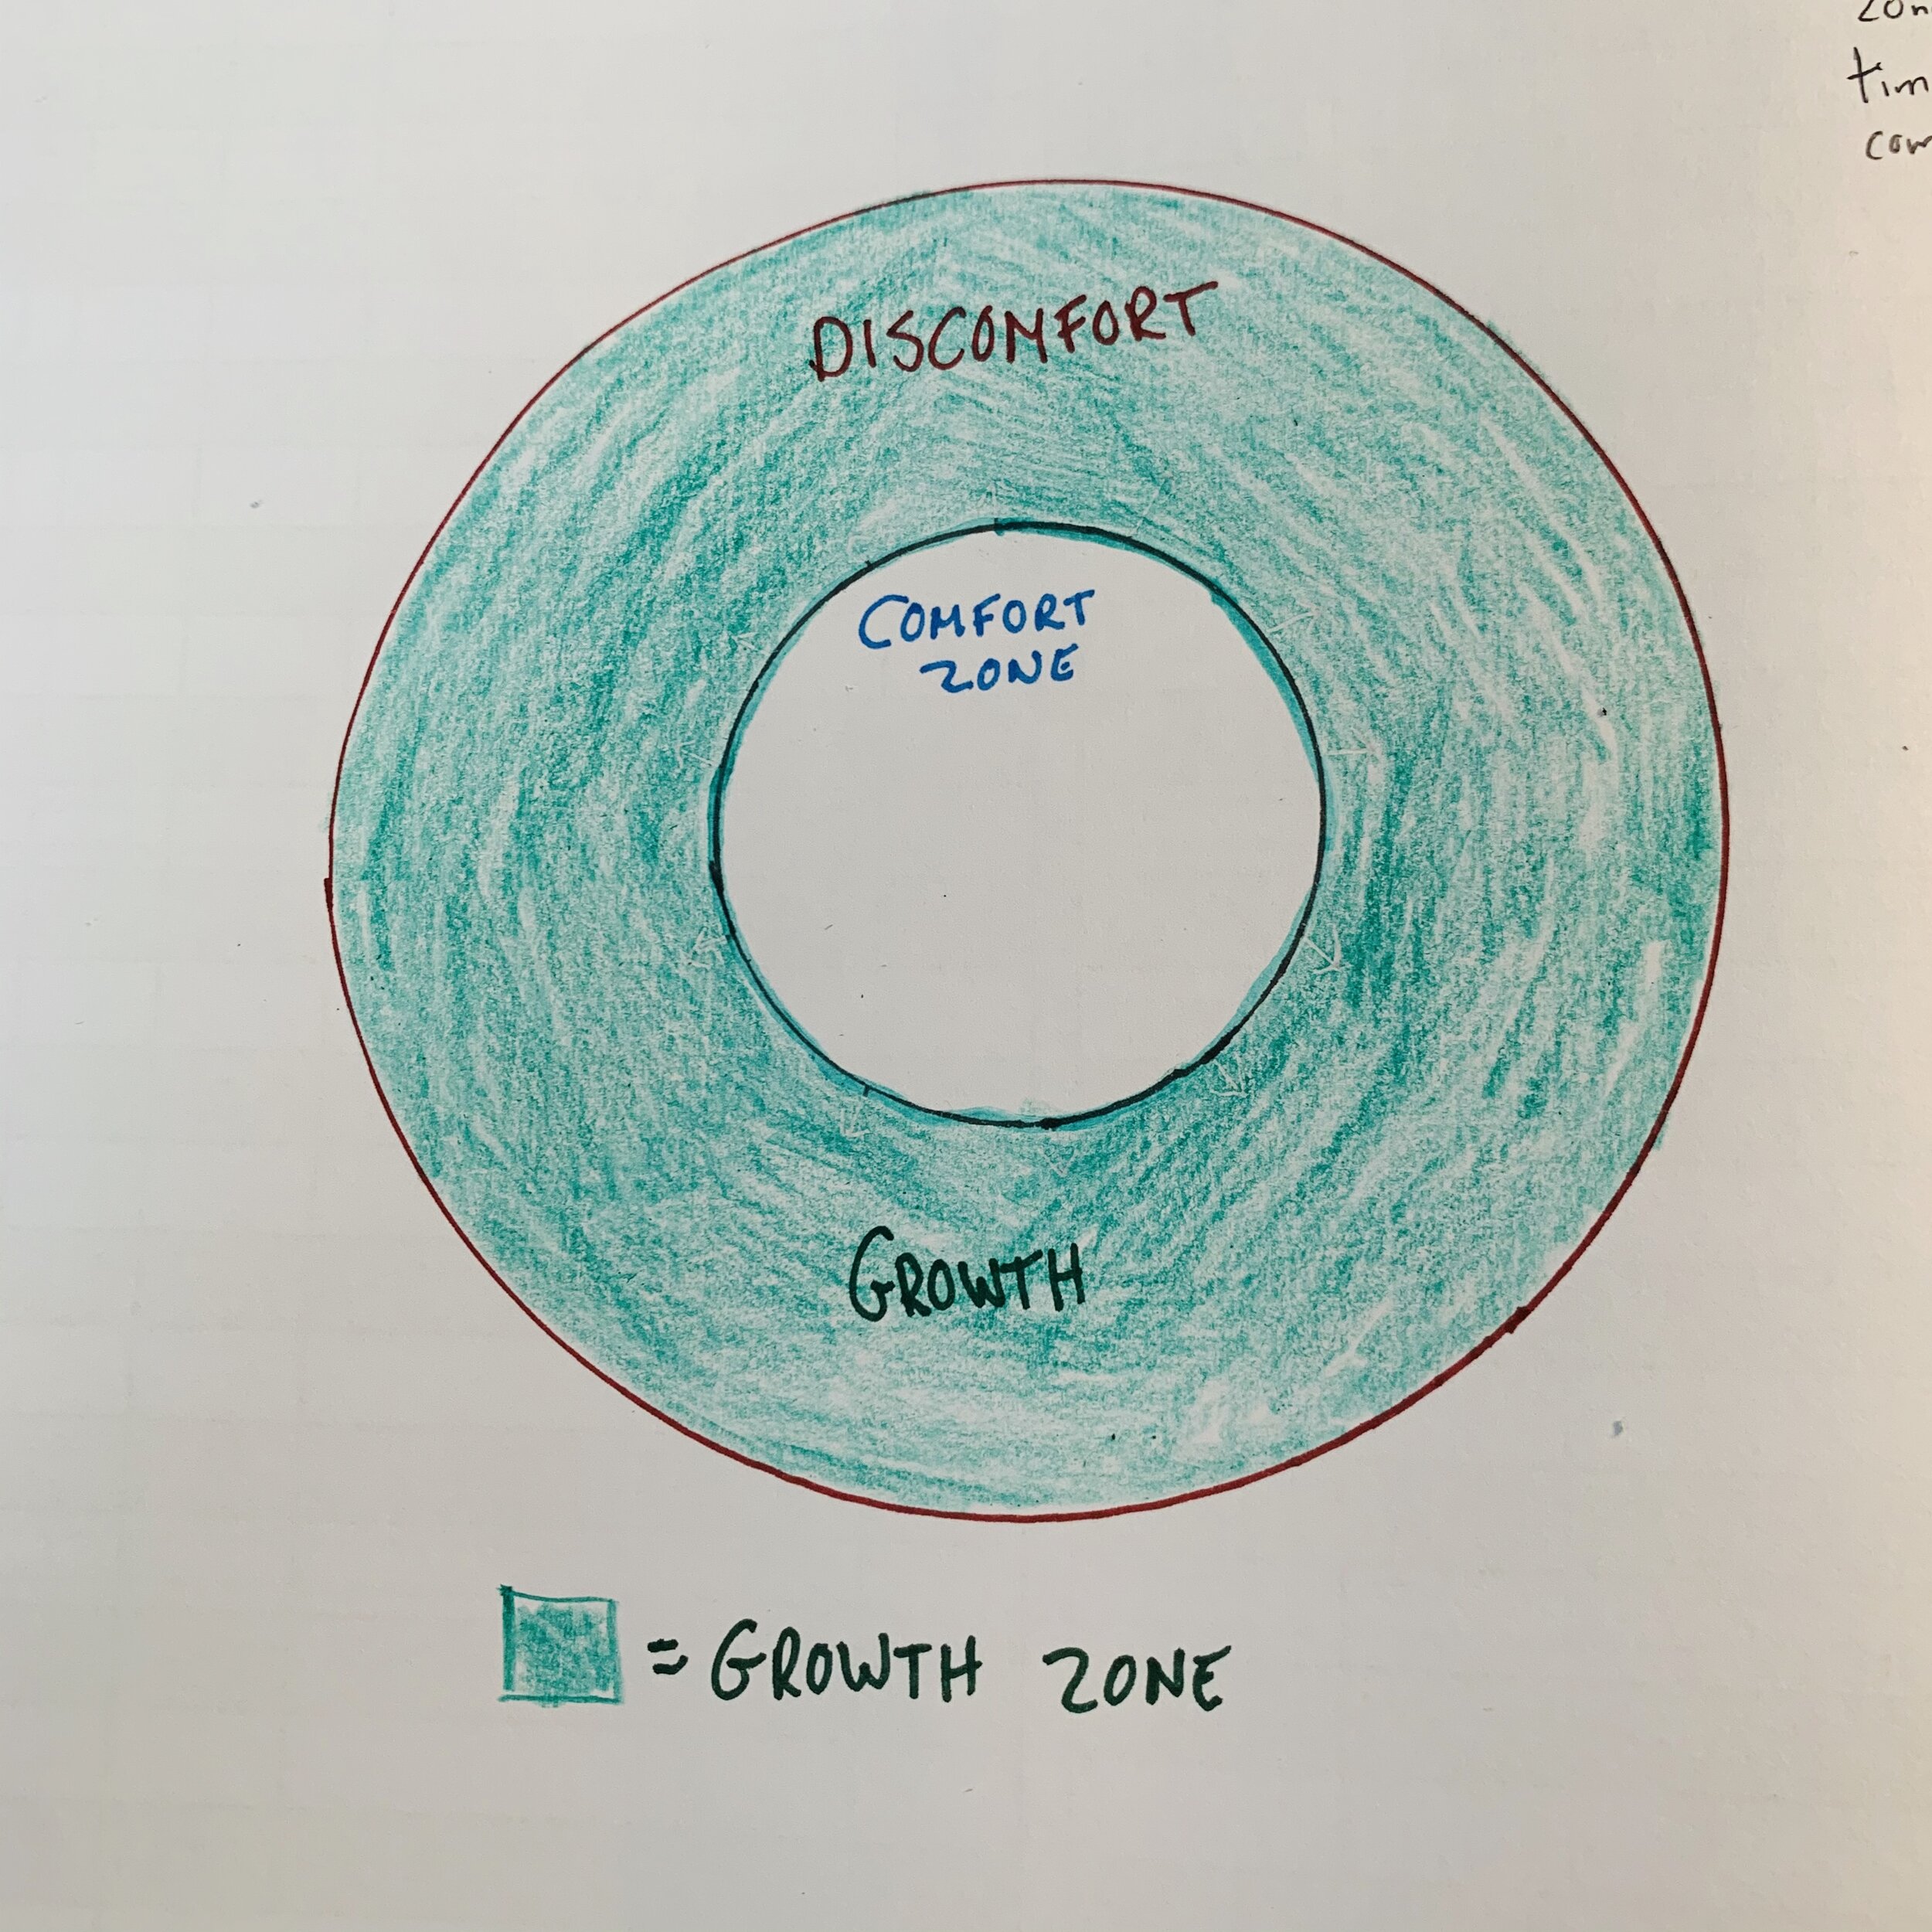 DISCOMFORT
COMFORT
ZONE
GROWTH
= GROWTH ZONE